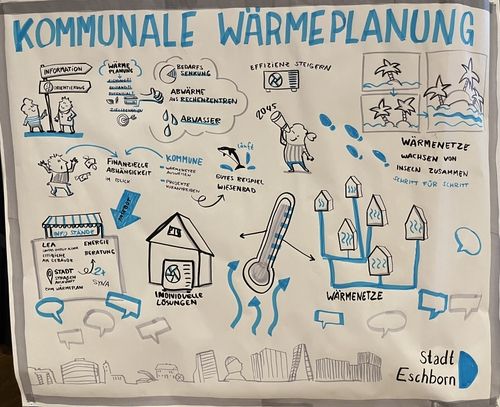 KOMMUNALE WÄRMEPLANUNG
INFORMATION
ORIENTIERUNG
WÄRME
PLANUNG
BEDARFS
SENKUNG
ABWÄRME
AUS RECHENZENTREN
ABWASSER
EFFIZIENZ STEIGERN
2045
WÄRMENETZE
WACHSEN VON
INSELN ZUSAMMEN
SCHRITT FÜR SCHRITT
FINANZIELLE
ABHÄNGIGKEIT
IM BLICK
KOMMUNE
WÄRMENETZE
PROJEKTE
läuft
GUTES BEISPIEL
WIESENBAD
INFO STÄNDE
LEA
ENERGIE
BERATUNG
AM GEBÄUDE
STADT
ZUM WÄRMEPLAN
SYNA
INDIVIDUELLE
LÖSUNGEN
WÄRMENETZE
Stadt
Eschborn